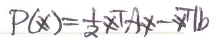 P(x)=½xᵀAx-xᵀb